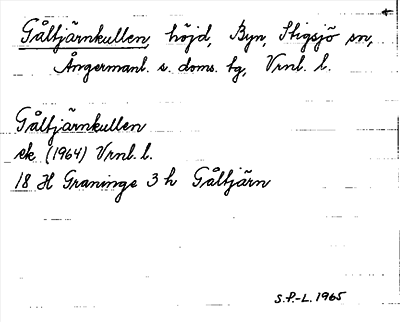 Gåltjärnkullen, höjd, Byn, Stigsjö sn,
Ångermanl. s. doms. tg, Vrnl. l.
Gåltjärnkullen
ek (1964) Vrnl. l.
18 H Graninge 3 h Gåltjärn
S.P.-L. 1965